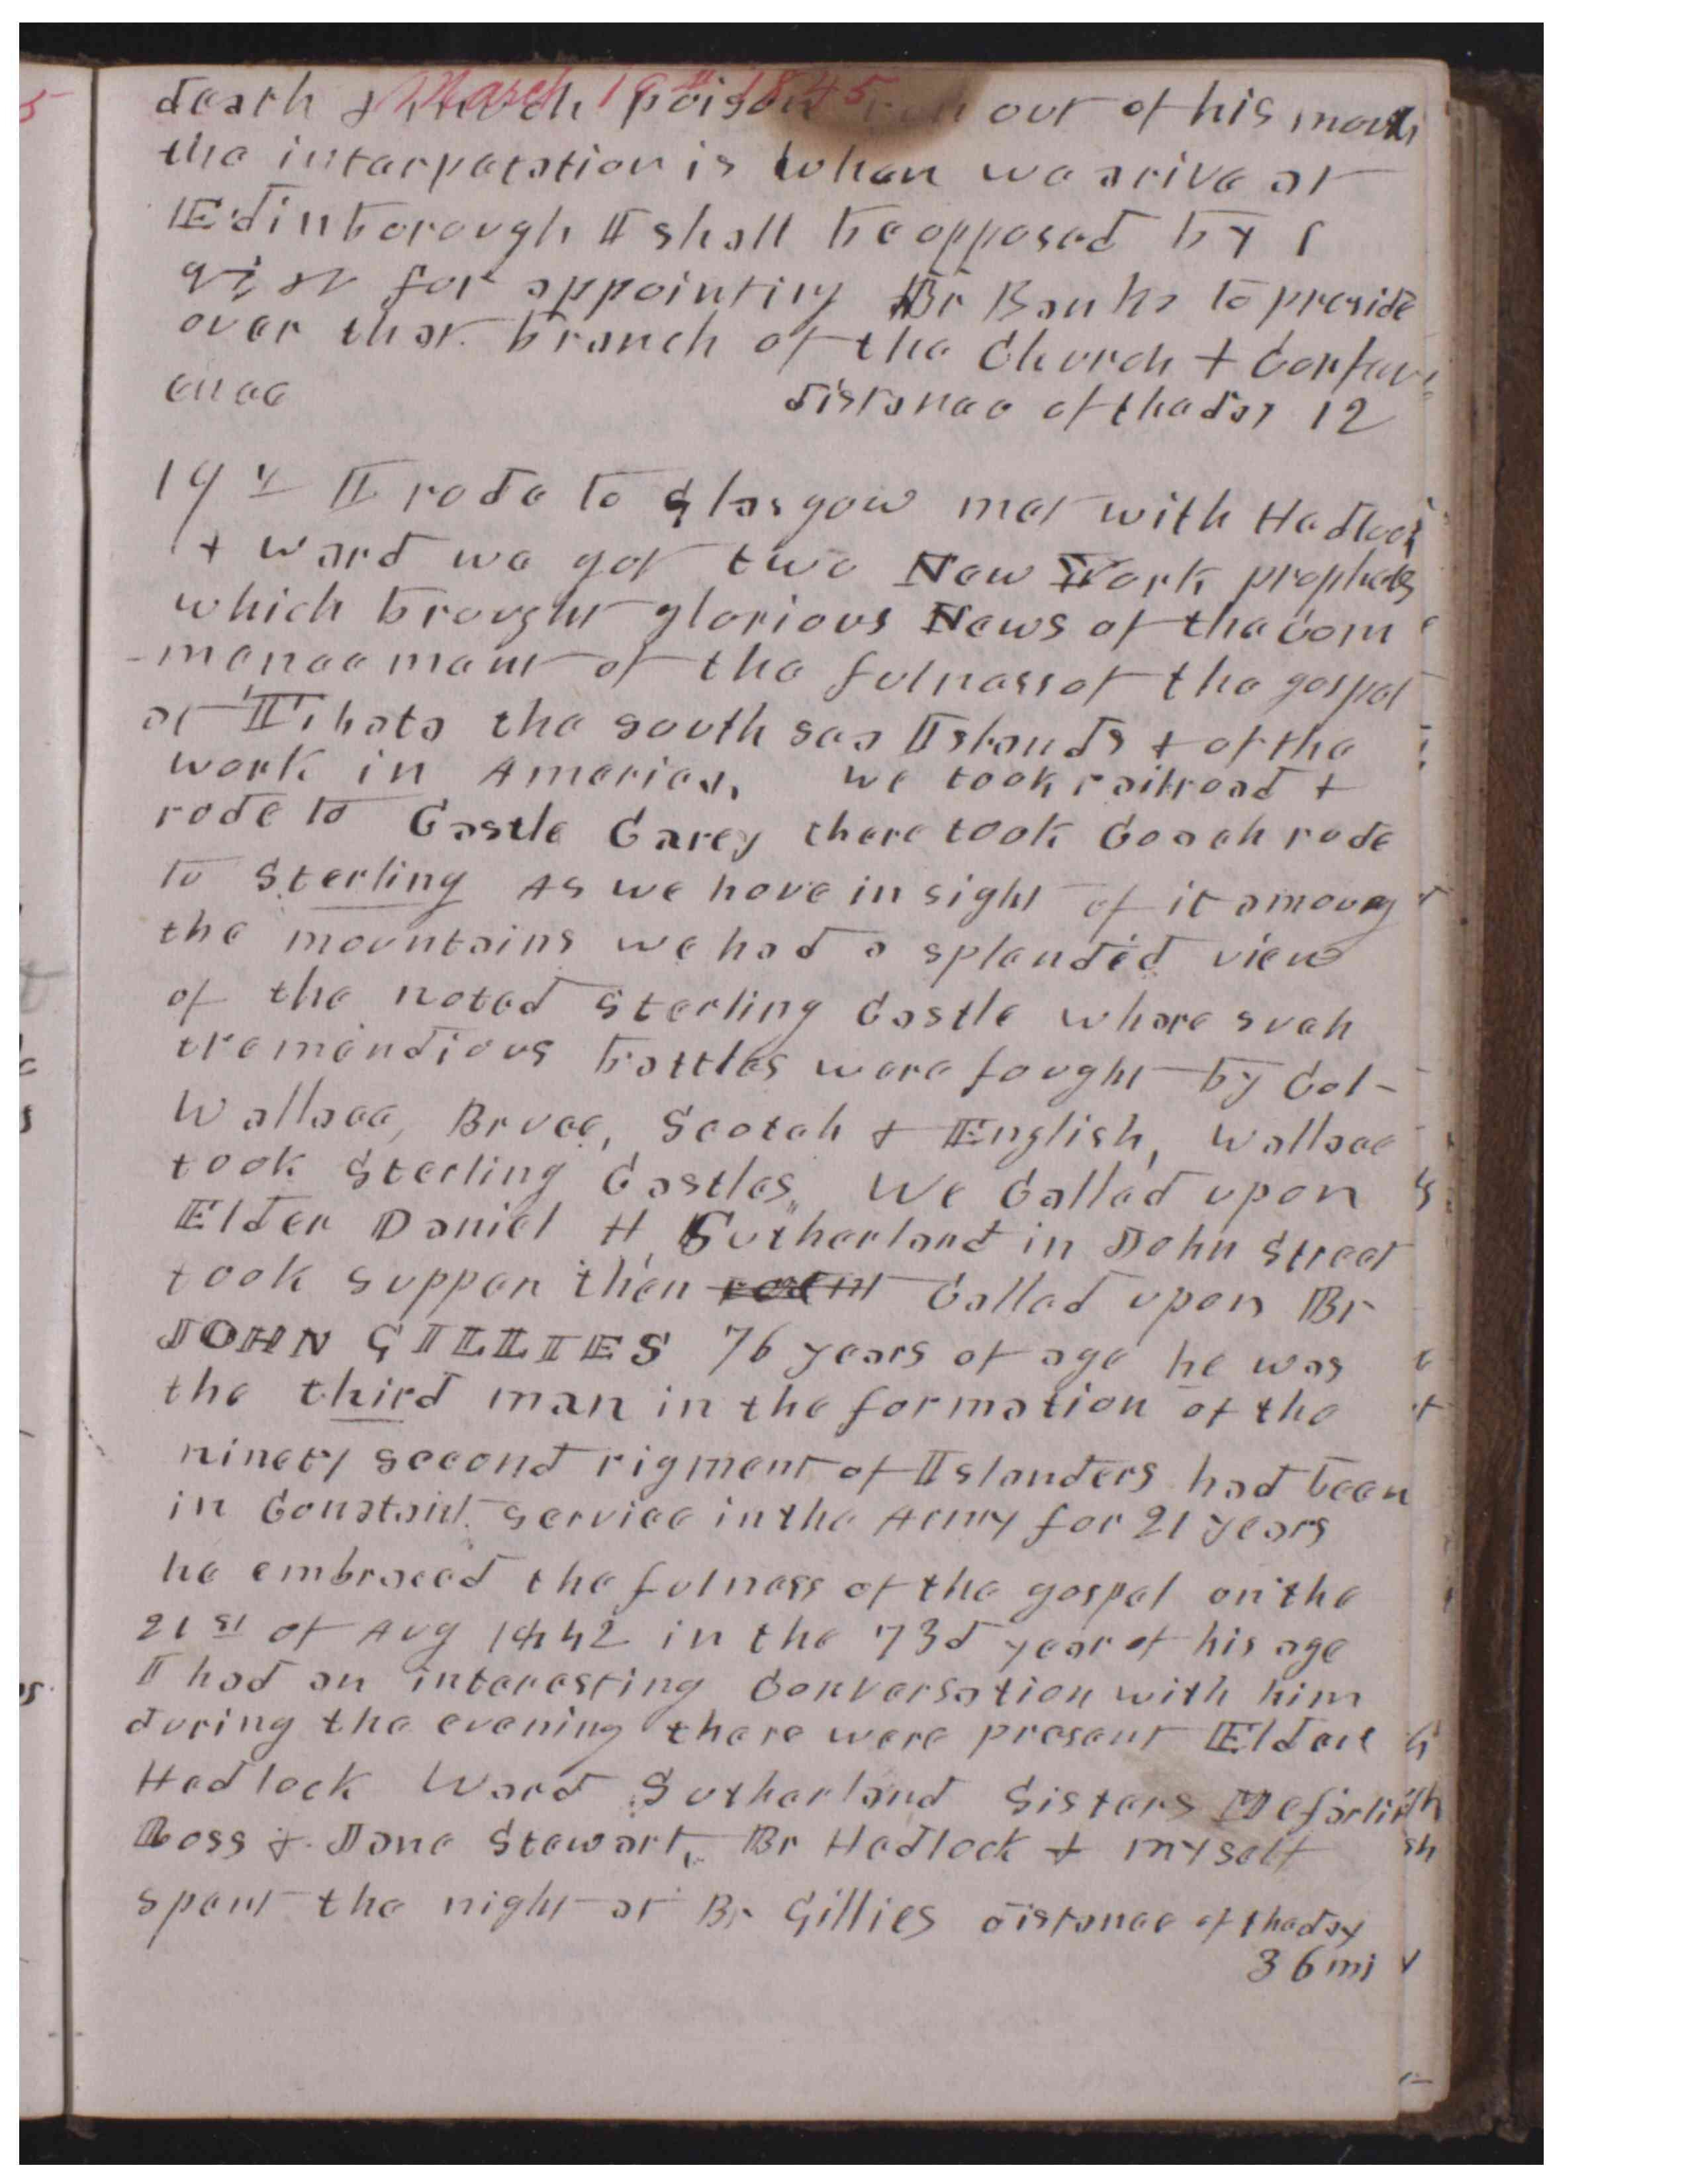 March 19th 1845
death & much poison run out of his mouth
the interpetation is when we arive at
Edinborough I shall be opposed by
for appointing Br Banks to preside
over that branch of the Church & Confer
ence distance of the day 12
19th I rode to Glasgow met with Hedlock
& Ward we got two New York prophets
which brought glorious News of the com
-mencement of the fulness of the gospel
at Tihata the south sea Islands & of the
work in America, we took railroad &
rode to Castle Carey there took Coach rode
to Sterling As we hove in sight of it among
the mountains we had a splendid view
of the noted Sterling Castle where such
tremendious battles were fought by Col-
Wallace, Bruce, Scotch & English, Wallace
took Sterling Castles, We Called upon
Elder Daniel H, Sutherland in John Street
took supper then Called upon Br
JOHN GILLIES 76 years of age he was
the third man in the formation of the
ninety second rigment of Islanders had been
in Constant service in the Army for 21 years
he embraced the fulness of the gospel on the
21st of Aug 1842 in the 73d year of his age
I had an interesting Conversation with him
during the evening there were present Elders
Hedlock Ward Sutherland Sisters
Ross & Jane Stewart, Br Hedlock & myself
spent the night at Br Gillies distance of the day
36 mi